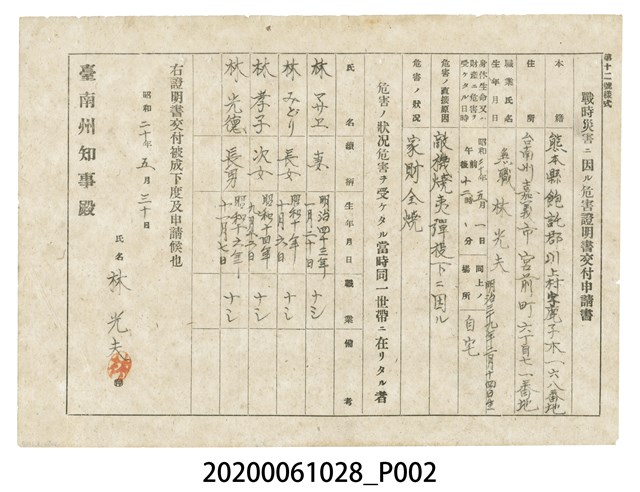 第十二號樣式
戰時災害ニ因ル危害證明書交付申請書
本籍 熊本縣飽託郡川上村字鹿子木一六八番地
住所 台南州嘉義市宮前町六丁目七一番地
職業氏名 無職 林光夫
生年月日 明治三十九年二月十四日生
身体生命又ハ財産ニ危害ヲ受ケタル日時 昭和二十年五月一日 午前十二時 分 同上ノ場所 自宅
危害ノ直接原因 敵機燒夷彈投下ニ因ル
危害ノ狀況 家財全燒
危害ノ狀況危害ヲ受ケタル當時同一世帶ニ在リタル者
氏名 續柄 生年月日 職業 備考
林 マサヱ 妻 明治四十三年一月二十日 ナシ
林 みどり 長女 昭和十年十月六日 ナシ
林 孝子 次女 昭和十四年九月五日 ナシ
林 光德 長男 昭和十六年十一月七日 ナシ
右證明書交付被成下度及申請候也
昭和二十年五月三十日
氏名 林光夫
臺南州知事殿
20200061028_P002